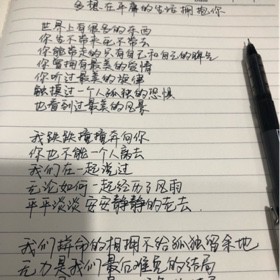 多想在平庸的生活拥抱你
世界上有很多的东西
你生不带来死不带去
你能带走的只有自己和自己的脾气
你曾拥有最美的爱情
你听过最美的旋律
触摸过一个人孤独的恐惧
也看到过最美的风景
我跌跌撞撞奔向你
你也不能一个人离去
我们在一起说过
无论如何一起经历了风雨
平平淡淡安安静静的老去
我们拼命的相拥不给孤独留余地
无力是我们最后难免的结局